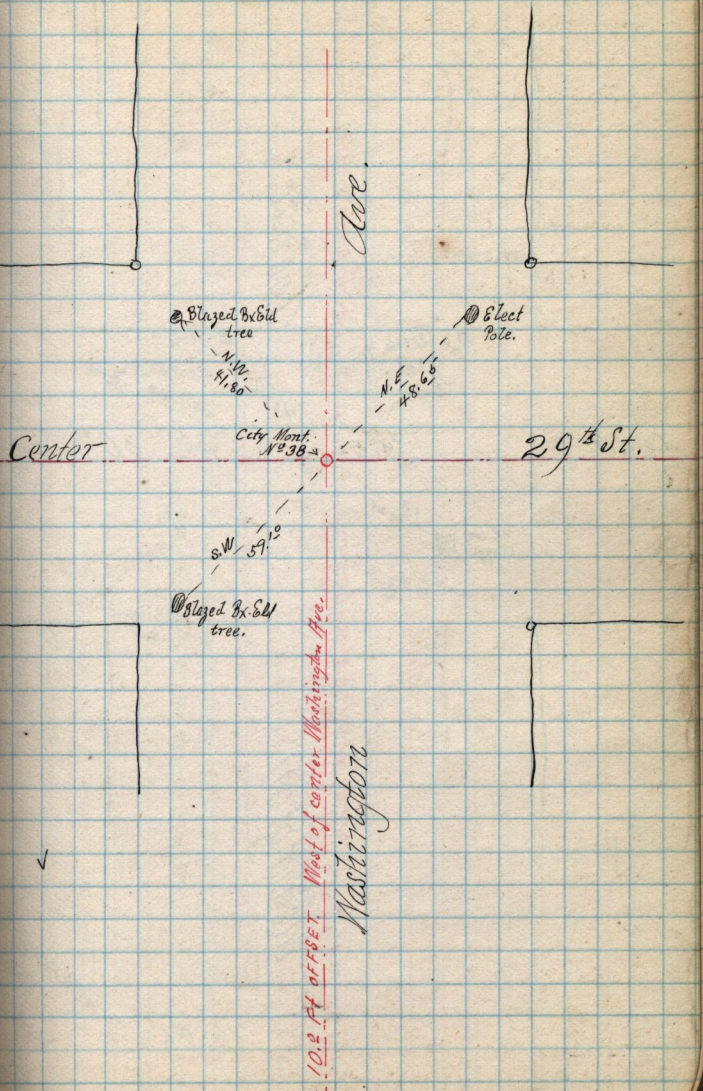 Ave.
Blazed Bx Eld
tree
Elect
Pole.
N.W.
41.80
N.E.
48.65
City Mont.
Nº 38
Center
29th St.
S.W. 59.10
Blazed Bx. Eld
tree.
10.2 Ft OFFSET. West of center Washington Ave.
Washington